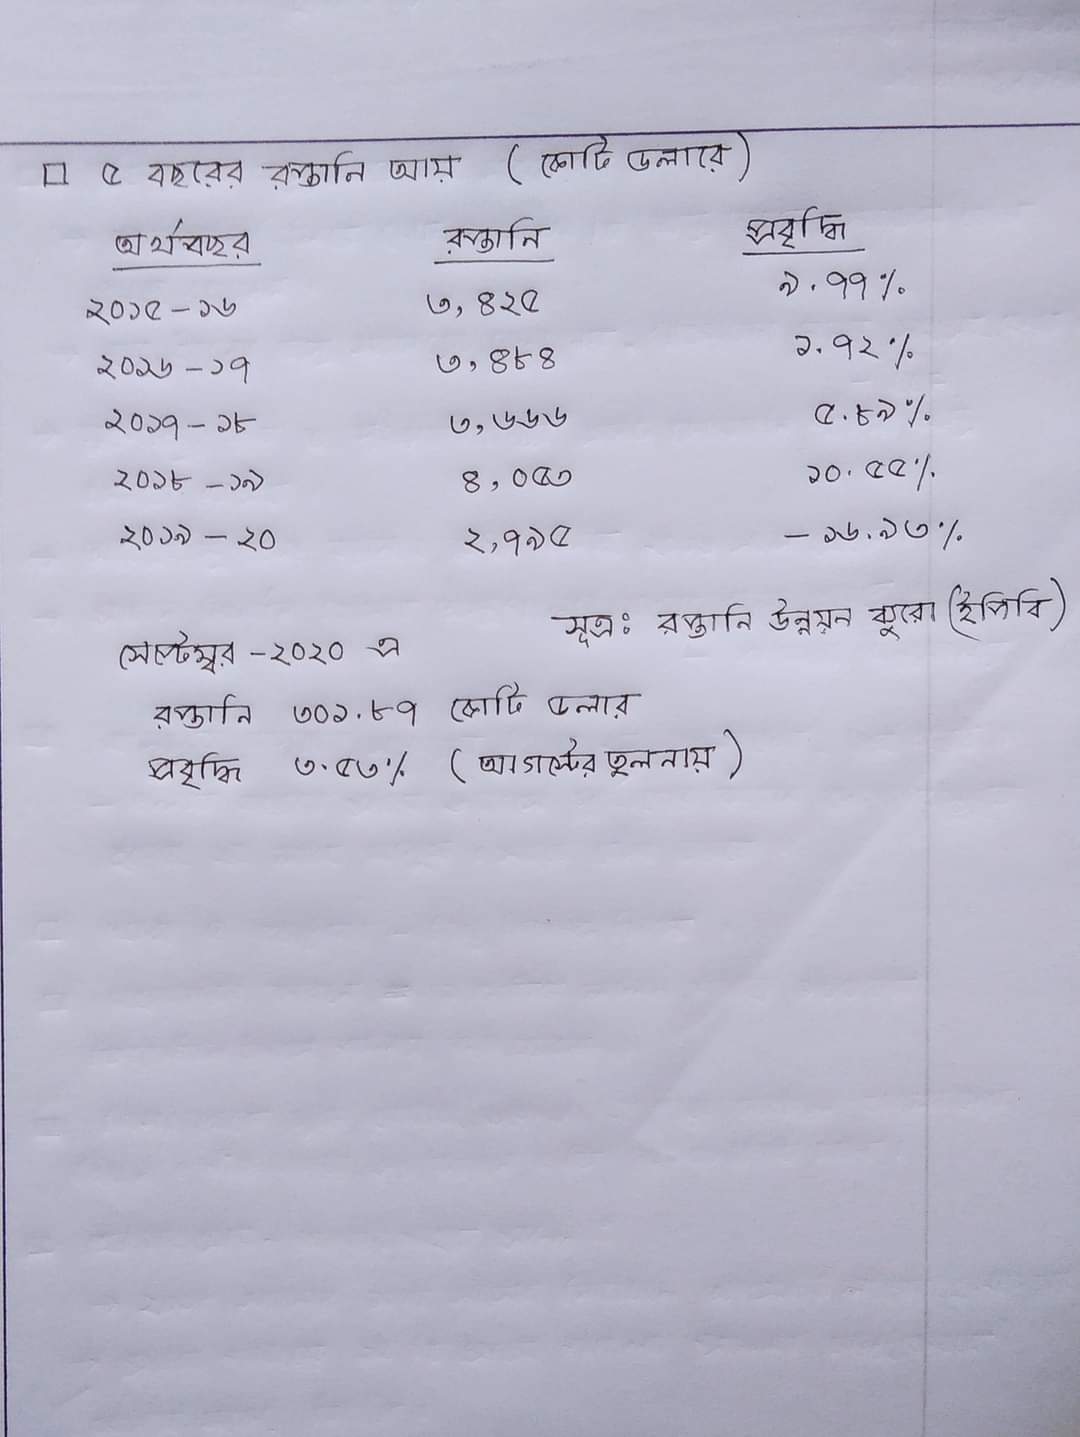 □ ৫ বছরের রপ্তানি আয় (কোটি ডলারে)
অর্থবছর রপ্তানি প্রবৃদ্ধি
২০১৫-১৬ ৩,৪২৫ ৯.৭৭%
২০১৬-১৭ ৩,৪৮৪ ১.৭২%
২০১৭-১৮ ৩,৬৬৬ ৫.৮৯%
২০১৮-১৯ ৪,০৫৩ ১০.৫৫%
২০১৯-২০ ২,৭৯৫ -১৬.৯৩%
সূত্রঃ রপ্তানি উন্নয়ন ব্যুরো (ইপিবি)
সেপ্টেম্বর-২০২০ এ
রপ্তানি ৩০১.৮৭ কোটি ডলার
প্রবৃদ্ধি ৩.৫৩% (আগস্টের তুলনায়)